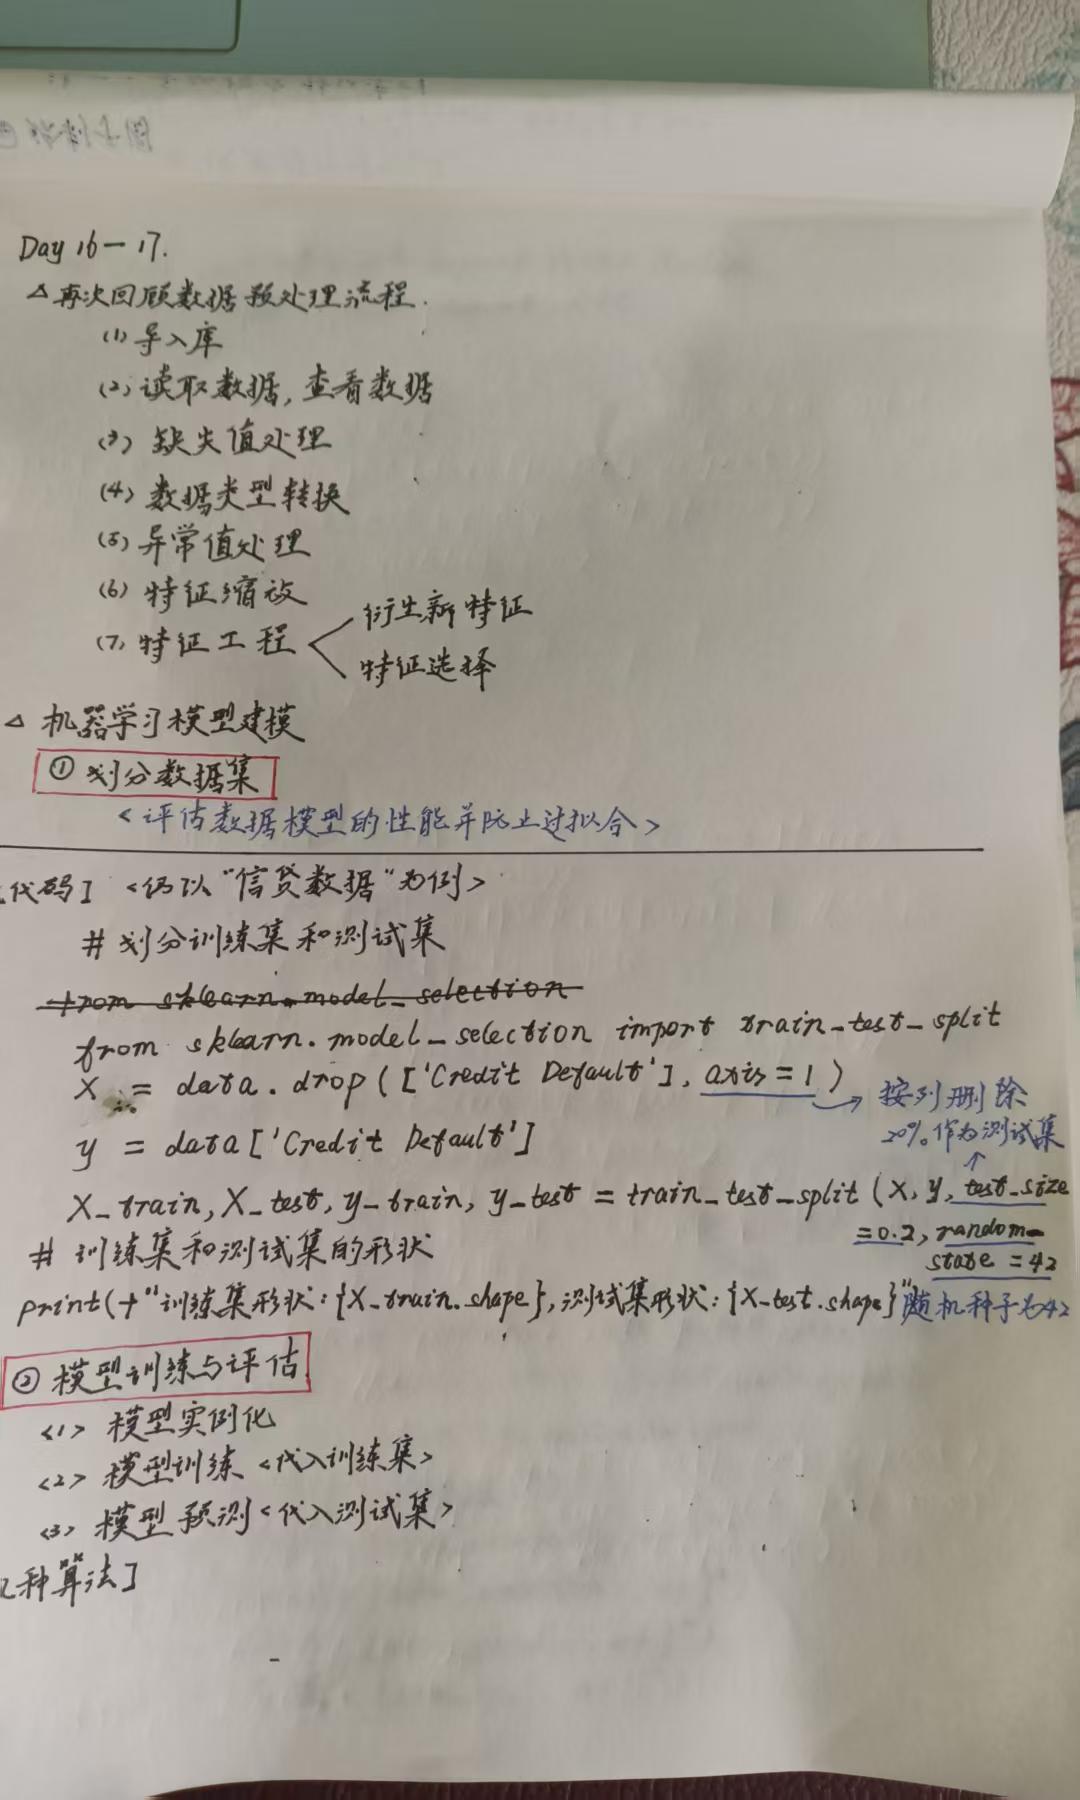 Day 16-17.
△ 再次回顾数据预处理流程.
(1) 导入库
(2) 读取数据, 查看数据
(3) 缺失值处理
(4) 数据类型转换
(5) 异常值处理
(6) 特征缩放
衍生新特征
(7) 特征工程
特征选择
△ 机器学习模型建模
① 划分数据集
<评估数据模型的性能并防止过拟合>
代码] <仍以"信贷数据"为例>
# 划分训练集和测试集
from sklearn.model_selection
from sklearn.model_selection import train_test_split
X = data.drop(['Credit Default'], axis=1)
按列删除
y = data['Credit Default']
20%作为测试集
X_train, X_test, y_train, y_test = train_test_split (X, y, test_size
=0.2, random-
# 训练集和测试集的形状
state = 42
print(f"训练集形状: {X_train.shape}, 测试集形状: {X_test.shape}"
随机种子为42
② 模型训练与评估
<1> 模型实例化
<2> 模型训练 <代入训练集>
<3> 模型预测 <代入测试集>
种算法]